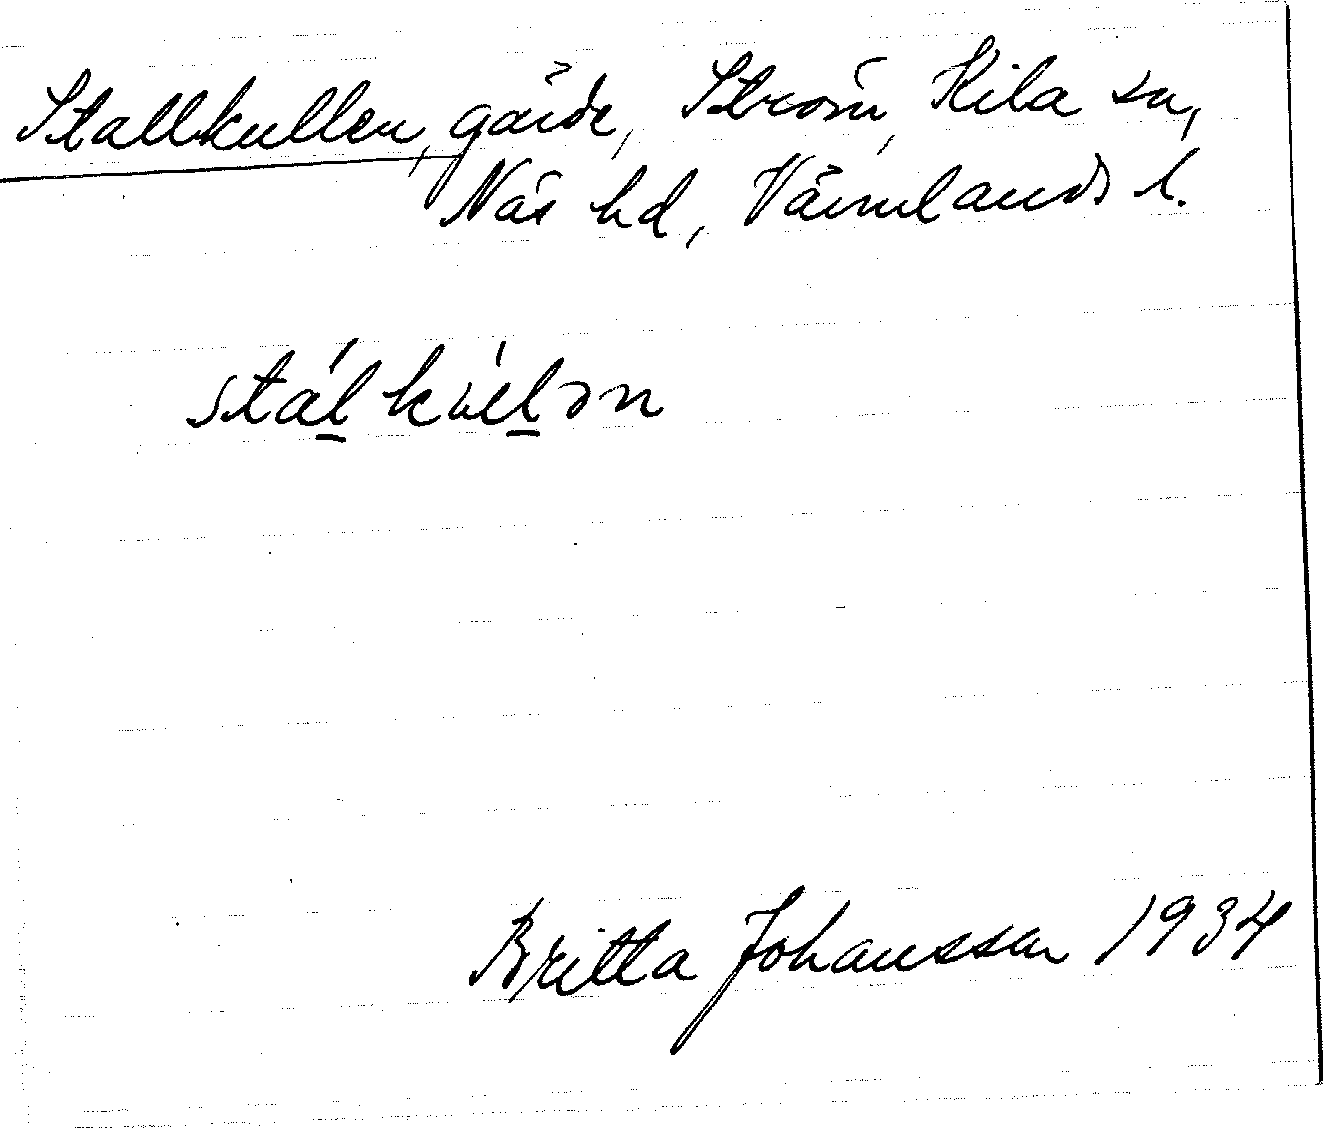 Stallkullen, gärde, Ström, Kila sn,
Näs hd, Värmlands l.
stál̲kùl̲ən
Britta Johansson 1934